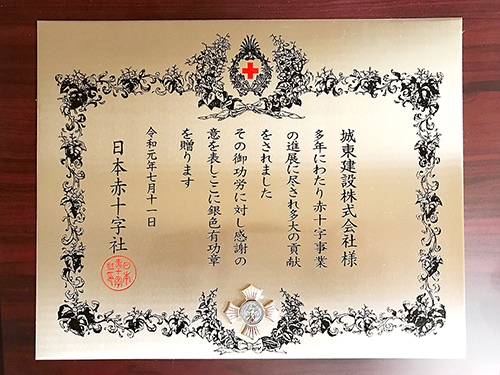 城東建設株式会社 様
多年にわたり赤十字事業
の進展に尽され多大の貢献
をされました
その御功労に対し感謝の
意を表しここに銀色有功章
を贈ります
令和元年七月十一日
日本赤十字社